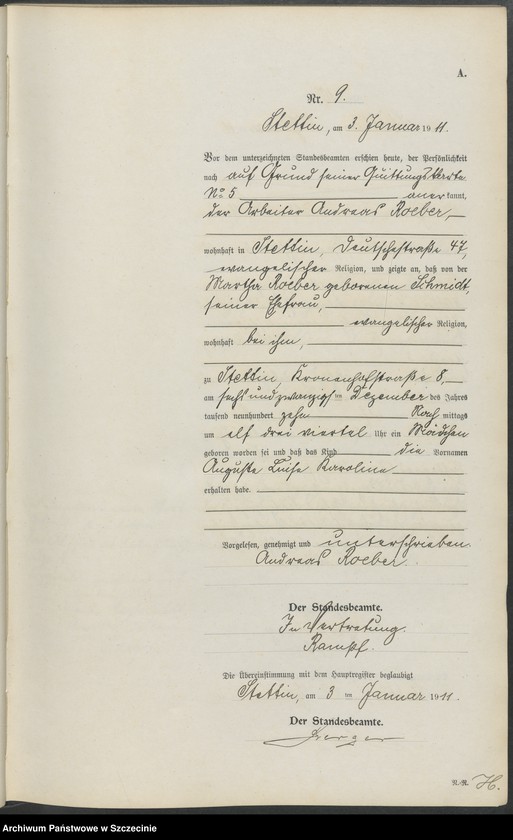 A.
Nr. 9.
Stettin, am 3. Januar 1911.
Vor dem unterzeichneten Standesbeamten erschien heute, der Persönlichkeit
nach auf Grund seiner Quittungskarte
No 5 anerkannt,
der Arbeiter Andreas Roeber,
wohnhaft in Stettin, Deutschestraße 47,
evangelischer Religion, und zeigte an, daß von der
Martha Roeber geborenen Schmidt,
seiner Ehefrau,
evangelischer Religion,
wohnhaft bei ihm,
zu Stettin, Kronenhofstraße 8,
am sechsundzwanzigsten Dezember des Jahres
tausend neunhundert zehn Nach mittags
um elf drei viertel Uhr ein Mädchen
geboren worden sei und daß das Kind die Vornamen
Auguste Luise Karoline
erhalten habe.
Vorgelesen, genehmigt und unterschrieben.
Andreas Roeber.
Der Standesbeamte.
In Vertretung.
Rampf.
Die Übereinstimmung mit dem Hauptregister beglaubigt
Stettin, am 3 ten Januar 1911.
Der Standesbeamte.
H.
Archiwum Państwowe w Szczecinie